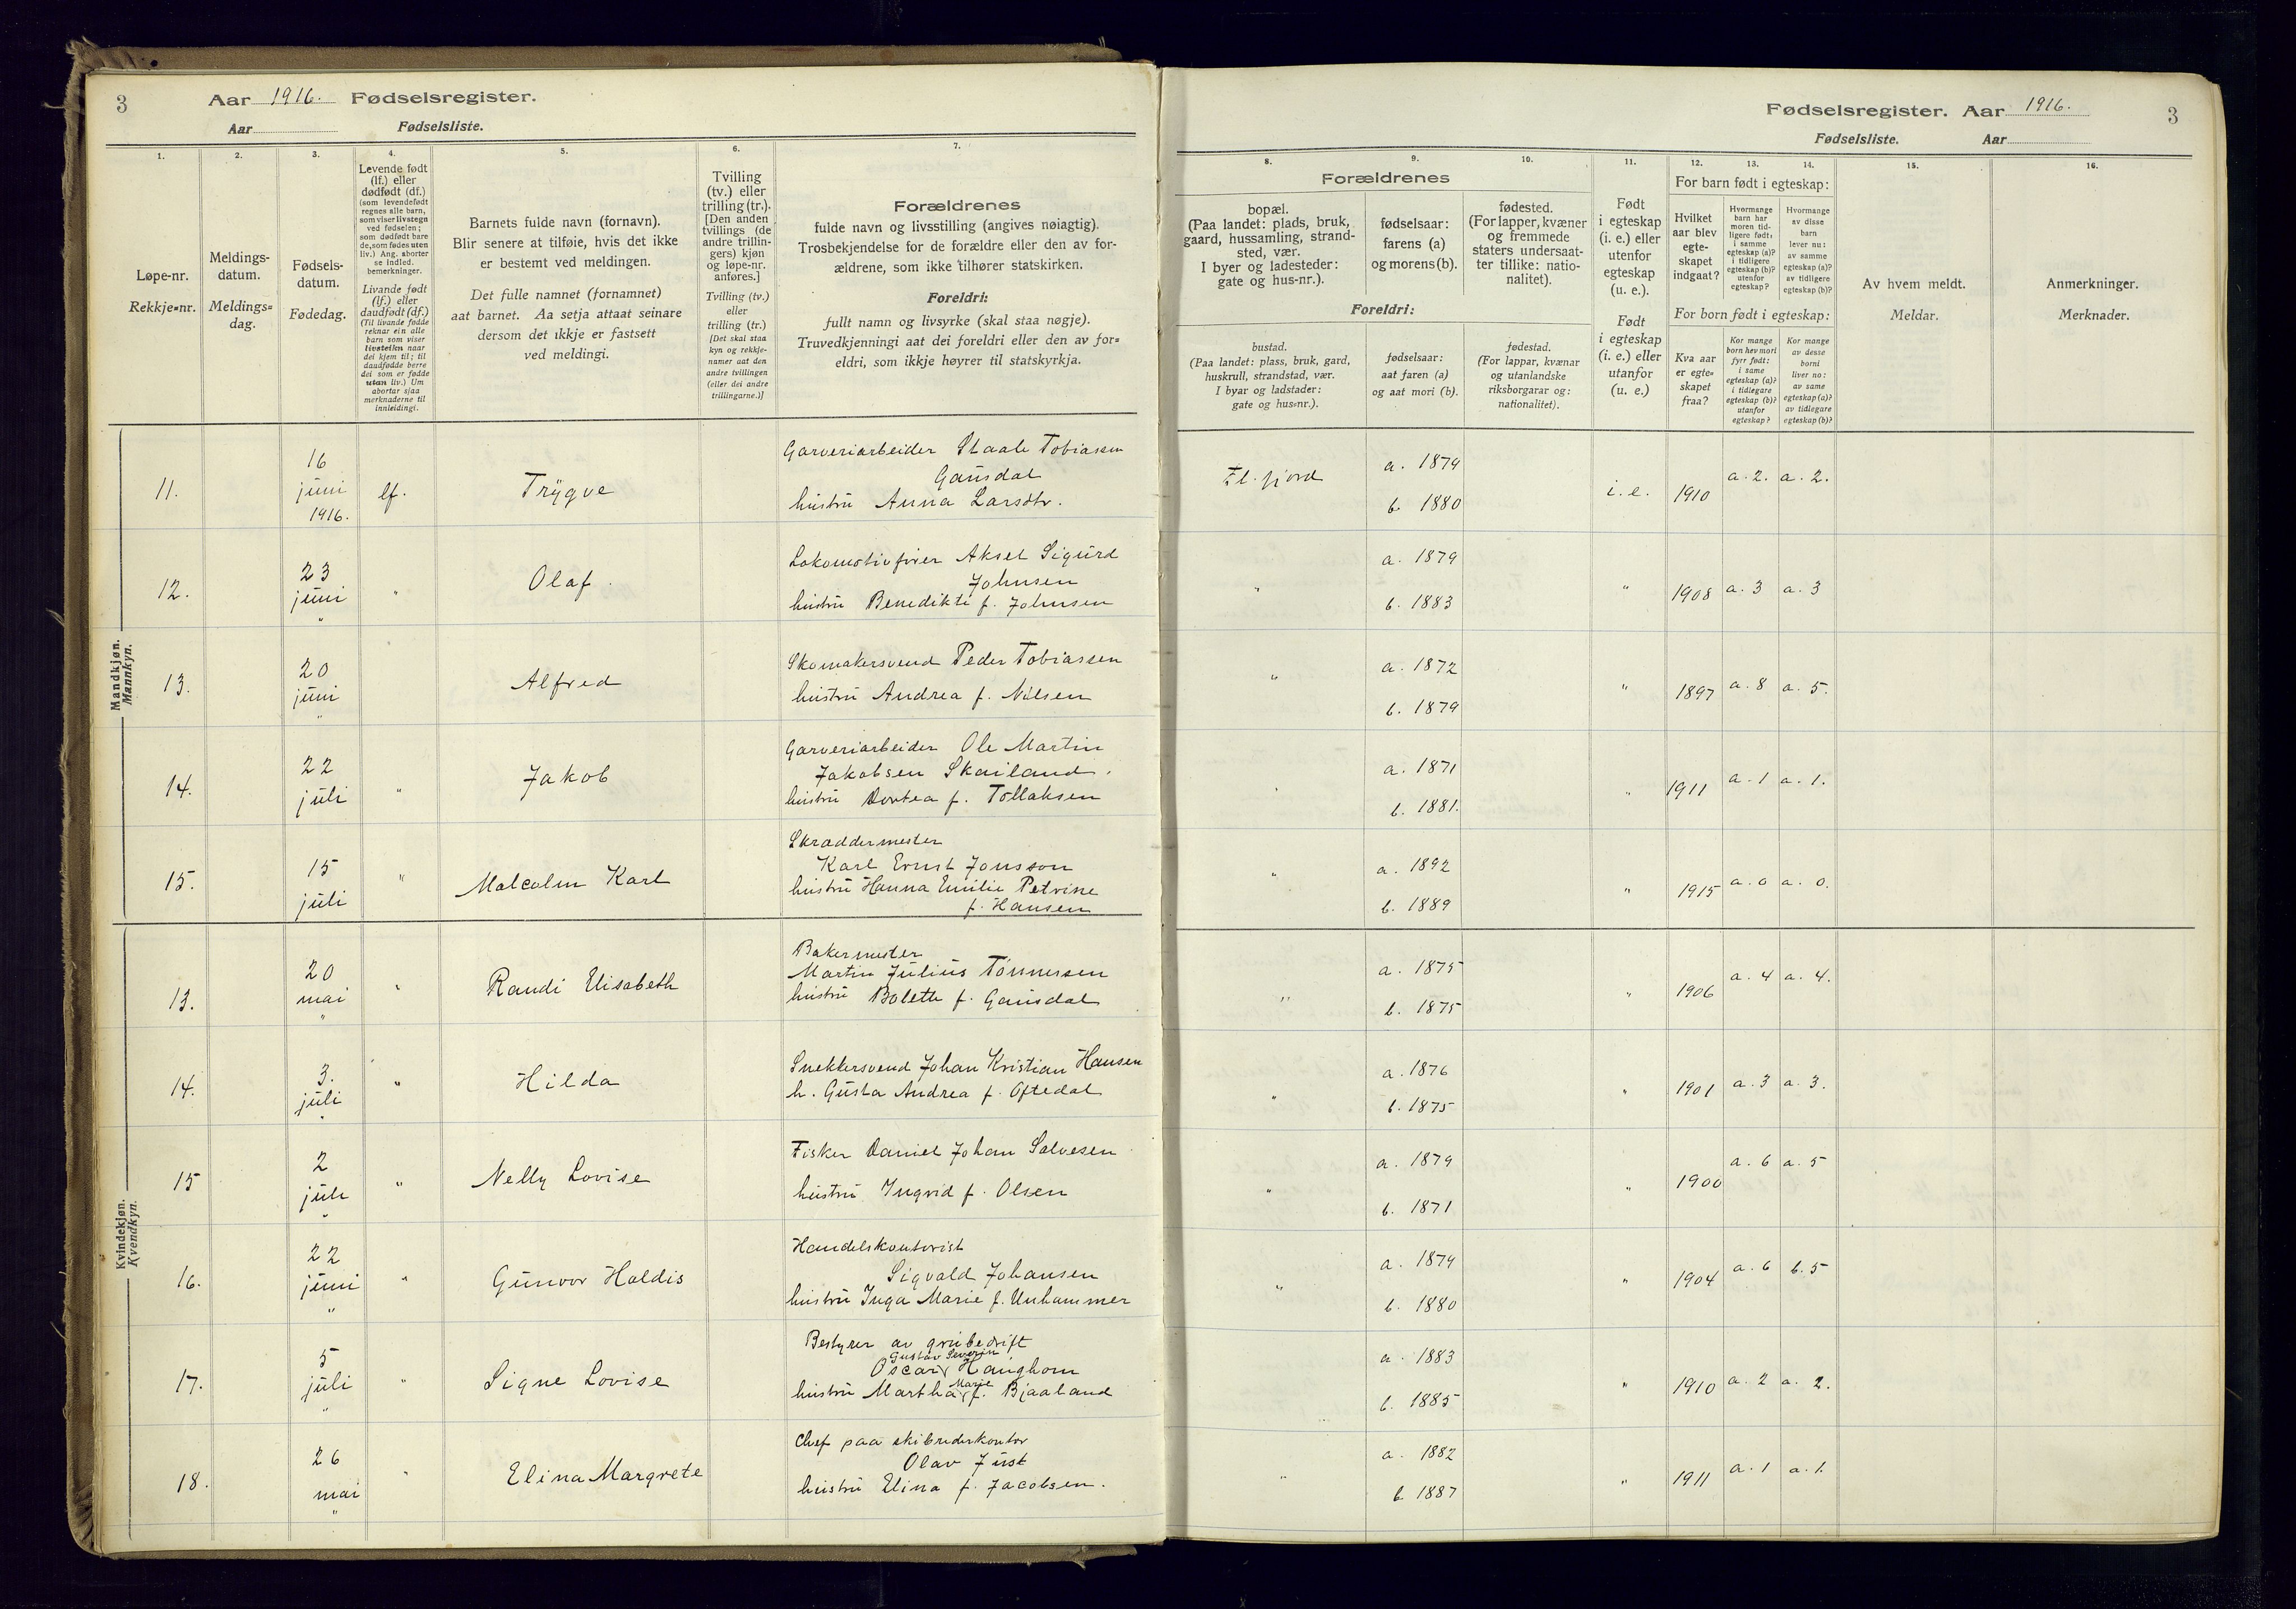 3
Aar 1916. Fødselsregister.
Aar Fødselsliste.
Fødselsregister. Aar 1916.
3
Fødselsliste. Aar
1.
Løpe-nr.
Rekkje=nr.
2.
Meldings-
datum.
Meldings=
dag.
3.
Fødsels-
datum.
Fødedag.
4.
Levende født
(lf.) eller
dødfødt (df.)
(som levendefødt
regnes alle barn,
som viser livstegn
ved fødselen;
som dødfødt bare
de, som fødes uten
liv.) Ang. aborter
se indled.
bemerkninger.
Livande født
(lf.) eller
daudfødt (df.)
(Til livande fødde
reknar ein alle
barn som viser
livsteikn naar
dei kjem til; til
daudfødde berre
dei som er fødde
utan liv.) Um
abortar sjaa
merknaderne til
innleidingi.
5.
Barnets fulde navn (fornavn).
Blir senere at tilføie, hvis det ikke
er bestemt ved meldingen.
Det fulle namnet (fornamnet)
aat barnet. Aa setja attaat seinare
dersom det ikkje er fastsett
ved meldingi.
6.
Tvilling
(tv.) eller
trilling (tr.).
[Den anden
tvillings (de
andre trillin-
gers) kjøn
og løpe-nr.
anføres.]
Tvilling (tv.)
eller
trilling (tr.)
[Det skal staa
kyn og rekkje-
namer aat den
andre tvillingen
(eller dei andre
trillingarne.)]
7.
Forældrenes
fulde navn og livsstilling (angives nøiagtig).
Trosbekjendelse for de forældre eller den av for-
ældrene, som ikke tilhører statskirken.
Foreldri:
fullt namn og livsyrke (skal staa nøgje).
Truvedkjenningi aat dei foreldri eller den av for=
eldri, som ikkje høyrer til statskyrkja.
8.
Forældrenes
bopæl.
(Paa landet: plads, bruk,
gaard, hussamling, strand-
sted, vær.
I byer og ladesteder:
gate og hus-nr.).
Foreldri:
bustad.
(Paa landet: plass, bruk, gard,
huskrull, strandstad, vær.
I byar og ladstader:
gate og hus=nr.).
9.
fødselsaar:
farens (a)
og morens (b).
fødselsaar:
aat faren (a)
og aat mori (b).
10.
fødested.
(For lapper, kvæner
og fremmede
staters undersaat-
ter tillike: natio-
nalitet).
fødestad.
(For lappar, kvænar
og utanlandske
riksborgarar og:
nationalitet).
11.
Født
i egteskap
(i. e.) eller
utenfor
egteskap
(u. e.).
Født
i egteskap
(i. e.) eller
utanfor
(u. e.)
12.
13.
14.
For barn født i egteskap:
Hvilket
aar blev
egte-
skapet
indgaat?
Hvormange
barn har
moren tid-
ligere født:
i samme
egteskap (a)?
i tidligere
egteskap (b)?
utenfor
egteskap?
Hvormange
av disse
barn
lever nu:
av samme
egteskap (a)?
av tidligere
egteskap (b)?
For born født i egteskap:
Kva aar
er egte=
skapet
fraa?
Kor mange
born hev mori
fyrr født:
i same
egteskap (a)?
i tidlegare
egteskap (b)?
utanfor
egteskap?
Kor mange
av desse
borni
liver no:
av same
egteskap (a)?
av tidlegare
egteskap (b)?
15.
Av hvem meldt.
Meldar.
16.
Anmerkninger.
Merknader.
Mandkjøn.
Mannkyn.
11. 16 juni 1916. lf. Trygve
Garveriarbeider Staale Tobiassen
Gausdal
hustru Anna Larsdtr.
Fl. fjord a. 1879 b. 1880 i.e. 1910 a. 2. a. 2.
12. 23 juni " " Olaf.
Lokomotivfører Aksel Sigurd
Johnsen
hustru Benedikte f. Johnsen
" a. 1879 b. 1883 " 1908 a. 3 a. 3
13. 20 juni " Alfred
Skomakersvend Peder Tobiassen
hustru Andrea f. Nilsen
" a. 1872 b. 1879 " 1897 a. 8 a. 5.
14. 22 juli " Jakob
Garveriarbeider Ole Martin
Jakobsen Skailand.
hustru Dortea f. Tollaksen
" a. 1871 b. 1881. " 1911 a. 1 a. 1.
15. 15 juli " Malcolm Karl
Skraddermester
Karl Ernst Jonsson
hustru Hanna Emilie Petrine
f. Hansen
" a. 1892 b. 1889 " 1915 a. 0 a. 0.
Kvindekjøn.
Kvendkyn.
13. 20 mai " " Randi Elisabeth
Bakermester
Martin Julius Tønnessen
hustru Bolette f. Gausdal
" a. 1875 b. 1875 " 1906 a. 4 a. 4.
14. 3. juli " " Hilda
Snekkersvend Johan Kristian Hansen
h. Gusta Andrea f. Oftedal
" a. 1876 b. 1875 " 1901 a. 3 a. 3.
15 2 juli " " Nelly Lovise
Fisker Daniel Johan Salvesen
hustru Ingrid f. Olsen
" a. 1879 b. 1871 " 1900 a. 6 a. 5
16. 22 juni " " Gunvor Haldis
Handelskontorist
Sigvald Johansen
hustru Inga Marie f. Unhammer
" a. 1879 b. 1880 " 1904 a. 6 b. 5
17. 5 juli " " Signe Lovise
Bestyrer av grubedrift
Gustav Severin
Oscar Haughom
hustru Martha Marie f. Bjaaland
a. 1883 b. 1885 " 1910 a. 2 a. 2.
18. 26 mai " " Elina Margrete
Chef paa skibrederkontor
Olav Just
hustru Elina f. Jacobsen.
" a. 1882 b 1887 " 1911 a. 1 a. 1.